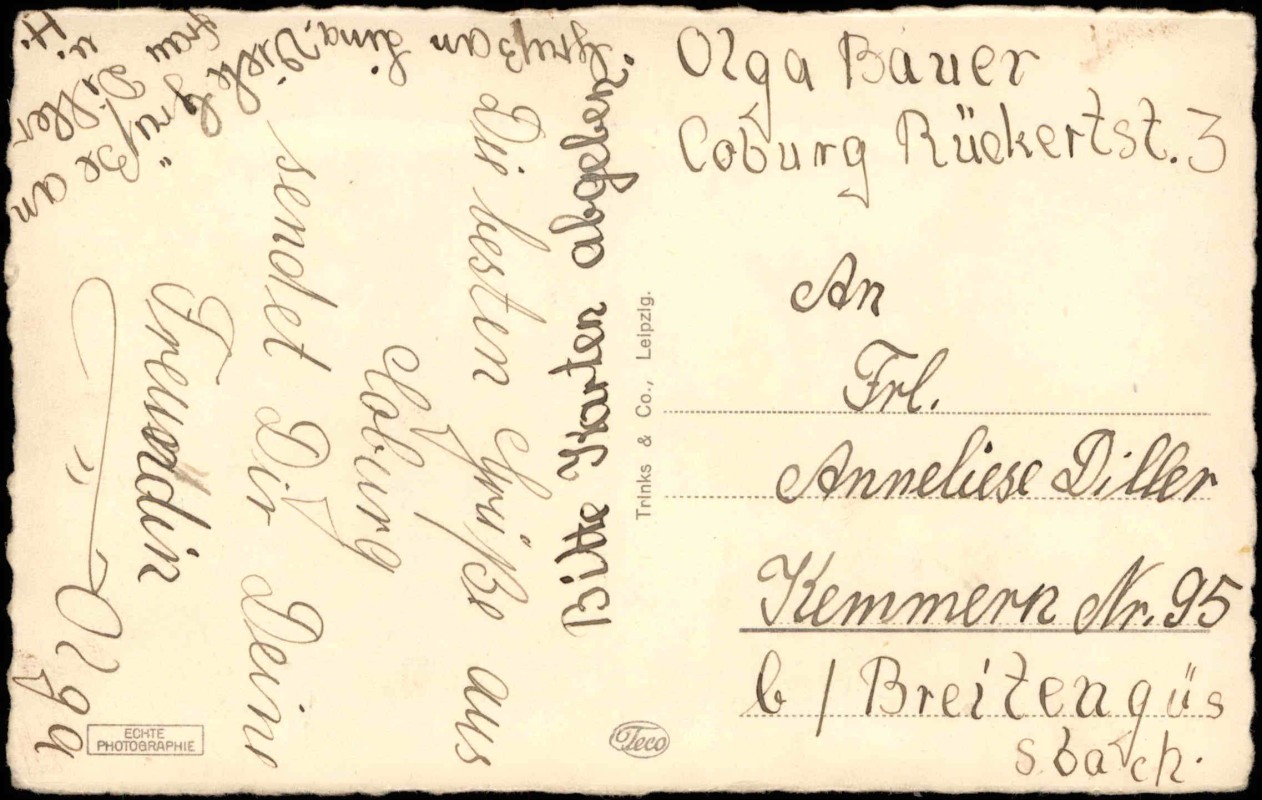 Olga Bauer
Coburg Rückertst. 3
An
Frl.
Anneliese Diller
Kemmern Nr. 95
b / Breitengüs
sbach.
Bitte Karten abgeben
Die besten Grüße aus
Coburg
sendet Dir Deine
Freundin
„Olga
Gruß an Lina. Viele Grüße an
Frau Diller
u.
Trinks & Co., Leipzig.
ECHTE
PHOTOGRAPHIE
Teco